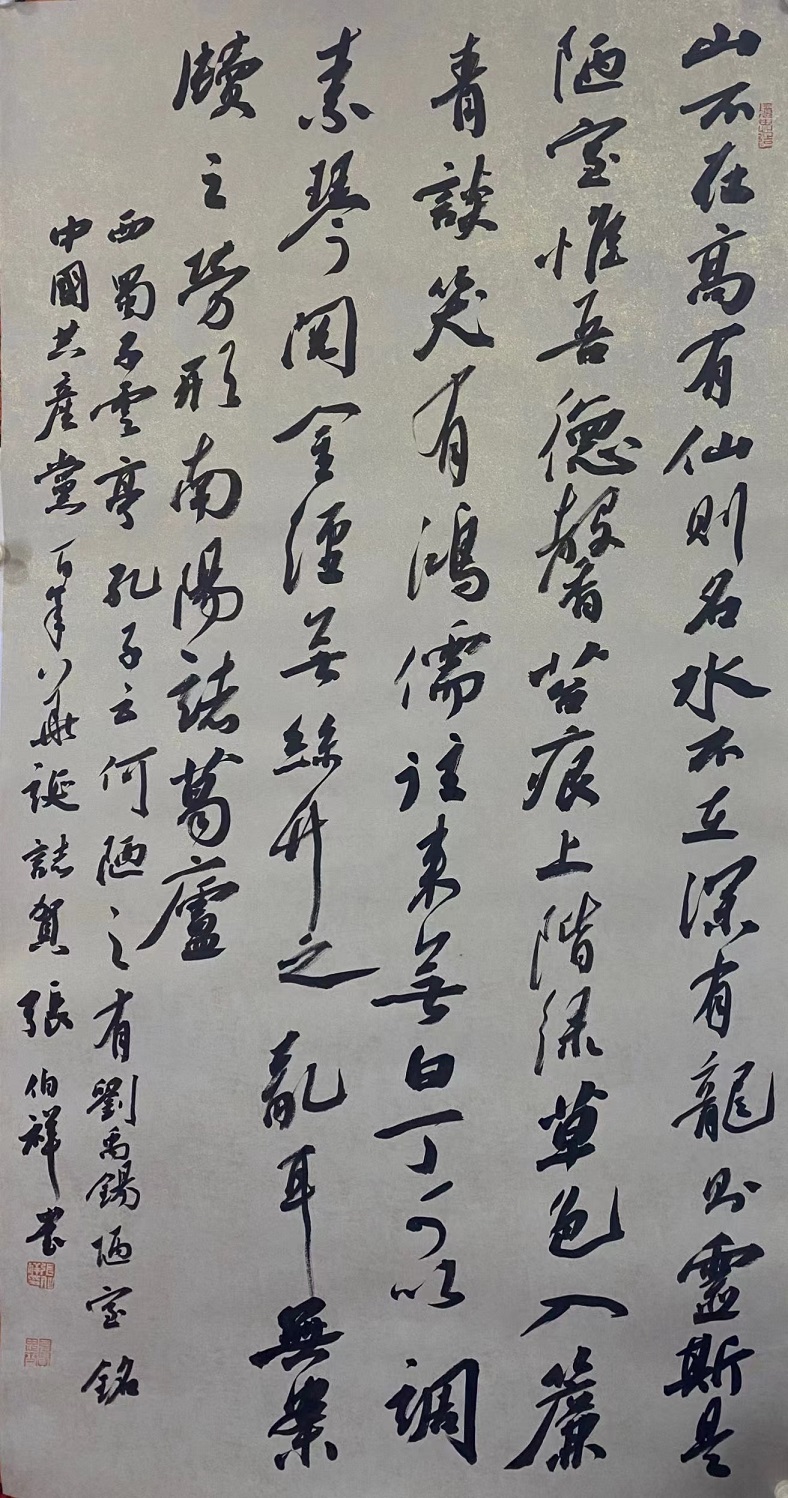 山不在高有仙則名水不在深有龍則靈斯是
陋室惟吾德馨苔痕上階綠草色入簾
青談笑有鴻儒往來無白丁可以調
素琴閱金經無絲竹之亂耳無案
牘之勞形南陽諸葛廬
西蜀子雲亭孔子云何陋之有劉禹錫陋室銘
中國共產黨百年華誕誌賀張伯祥書